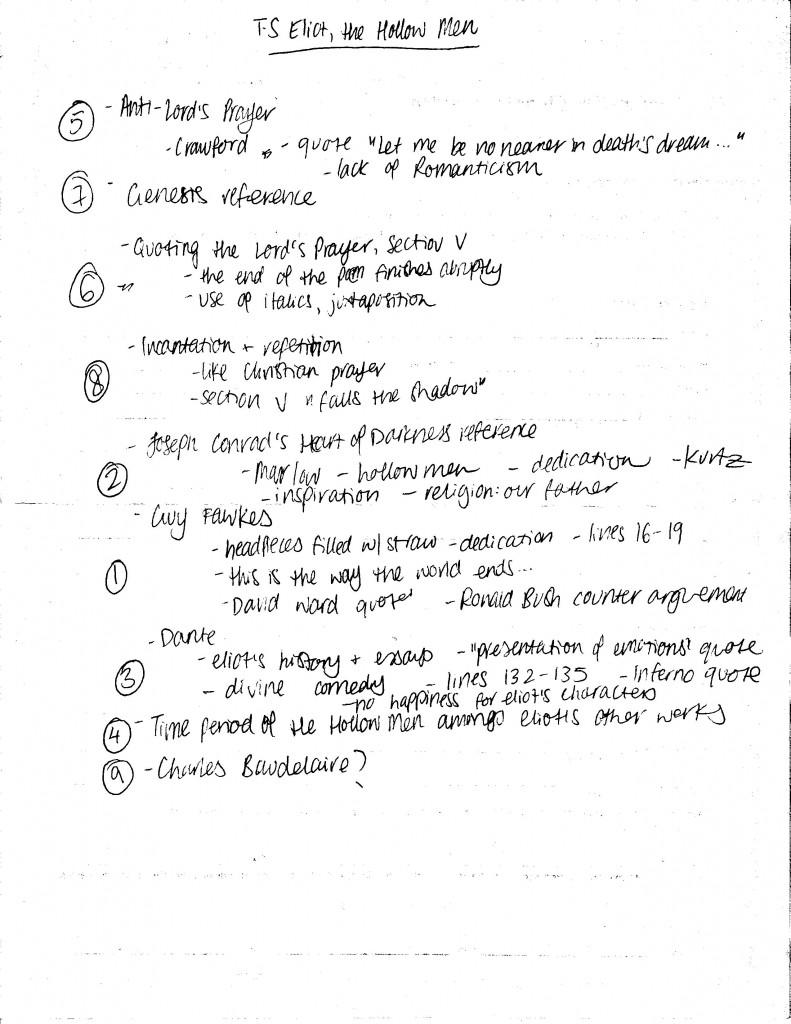 T.S Eliot, the Hollow Men
5 - Anti-Lord's Prayer
- Crawford - quote "Let me be no nearer in death's dream..."
- lack of Romanticism
7 - Genesis reference
- Quoting the Lord's Prayer, Section V
- the end of the poem finishes abruptly
6 - use of italics, juxtaposition
- Incantation + repetition
- like Christian prayer
8 - section V "falls the shadow"
- Joseph Conrad's Heart of Darkness reference
2 - Marlow - hollow men - dedication - Kurtz
- inspiration - religion: our father
- Guy Fawkes
- headpieces filled w/ straw - dedication - lines 16-19
1 - this is the way the world ends...
- David Ward quote - Ronald Bush counter arguement
- Dante
- eliot's history + essays - "presentation of emotions" quote
3 - divine comedy - lines 132-135 - Inferno quote
- no happiness for eliot's characters
4 - Time period of the Hollow Men amongs eliot's other works
9 - Charles Baudelaire?